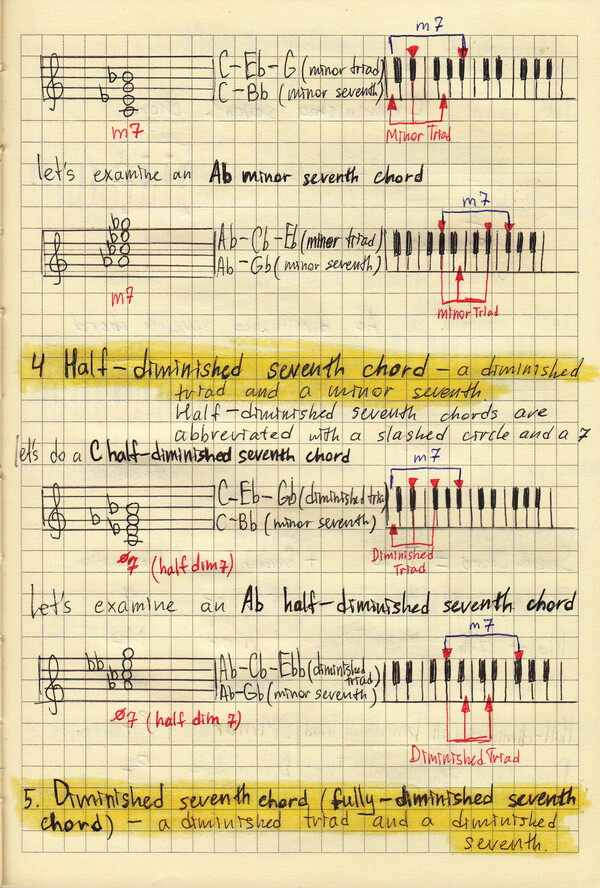 m7
C-Eb-G (minor triad)
C-Bb (minor seventh)
m7
Minor Triad
let's examine an Ab minor seventh chord
m7
Ab-Cb-Eb (minor triad)
Ab-Gb (minor seventh)
m7
minor Triad
4 Half-diminished seventh chord - a diminished
triad and a minor seventh.
Half-diminished seventh chords are
abbreviated with a slashed circle and a 7
let's do a C half-diminished seventh chord
m7
C-Eb-Gb (diminished tria
C-Bb (minor seventh)
ø7 (half dim7)
Diminished
Triad
Let's examine an Ab half-diminished seventh chord
m7
bb
Ab-Cb-Ebb (diminished
triad)
Ab-Gb (minor seventh)
ø7 (half dim 7)
Diminished Triad
5. Diminished seventh chord (fully-diminished seventh
chord) - a diminished triad and a diminished
seventh.